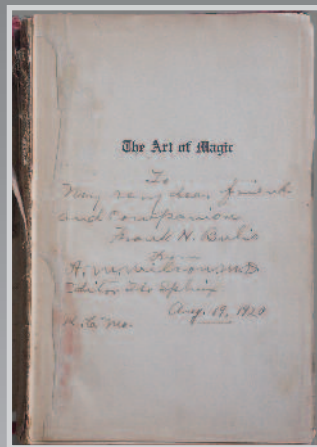 The Art of Magic
To
My very dear friend
and Companion
Frank H.
From
A. M. Wilson, M.D
Editor The Sphinx.
Aug. 19, 1920
K. C. Mo.